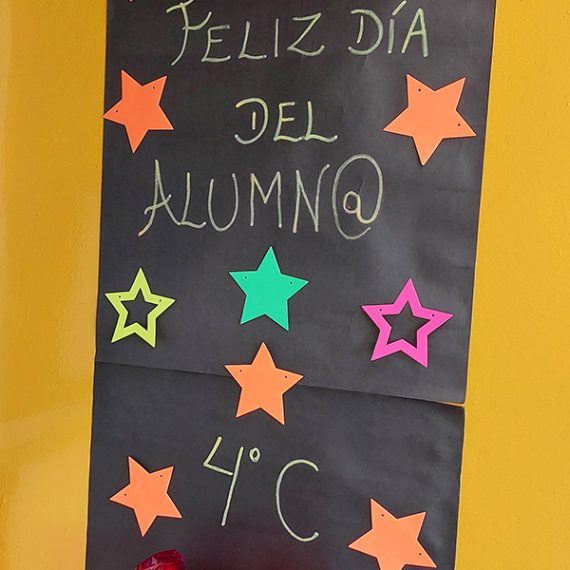 FELIZ DÍA
DEL
ALUMN@
4º C